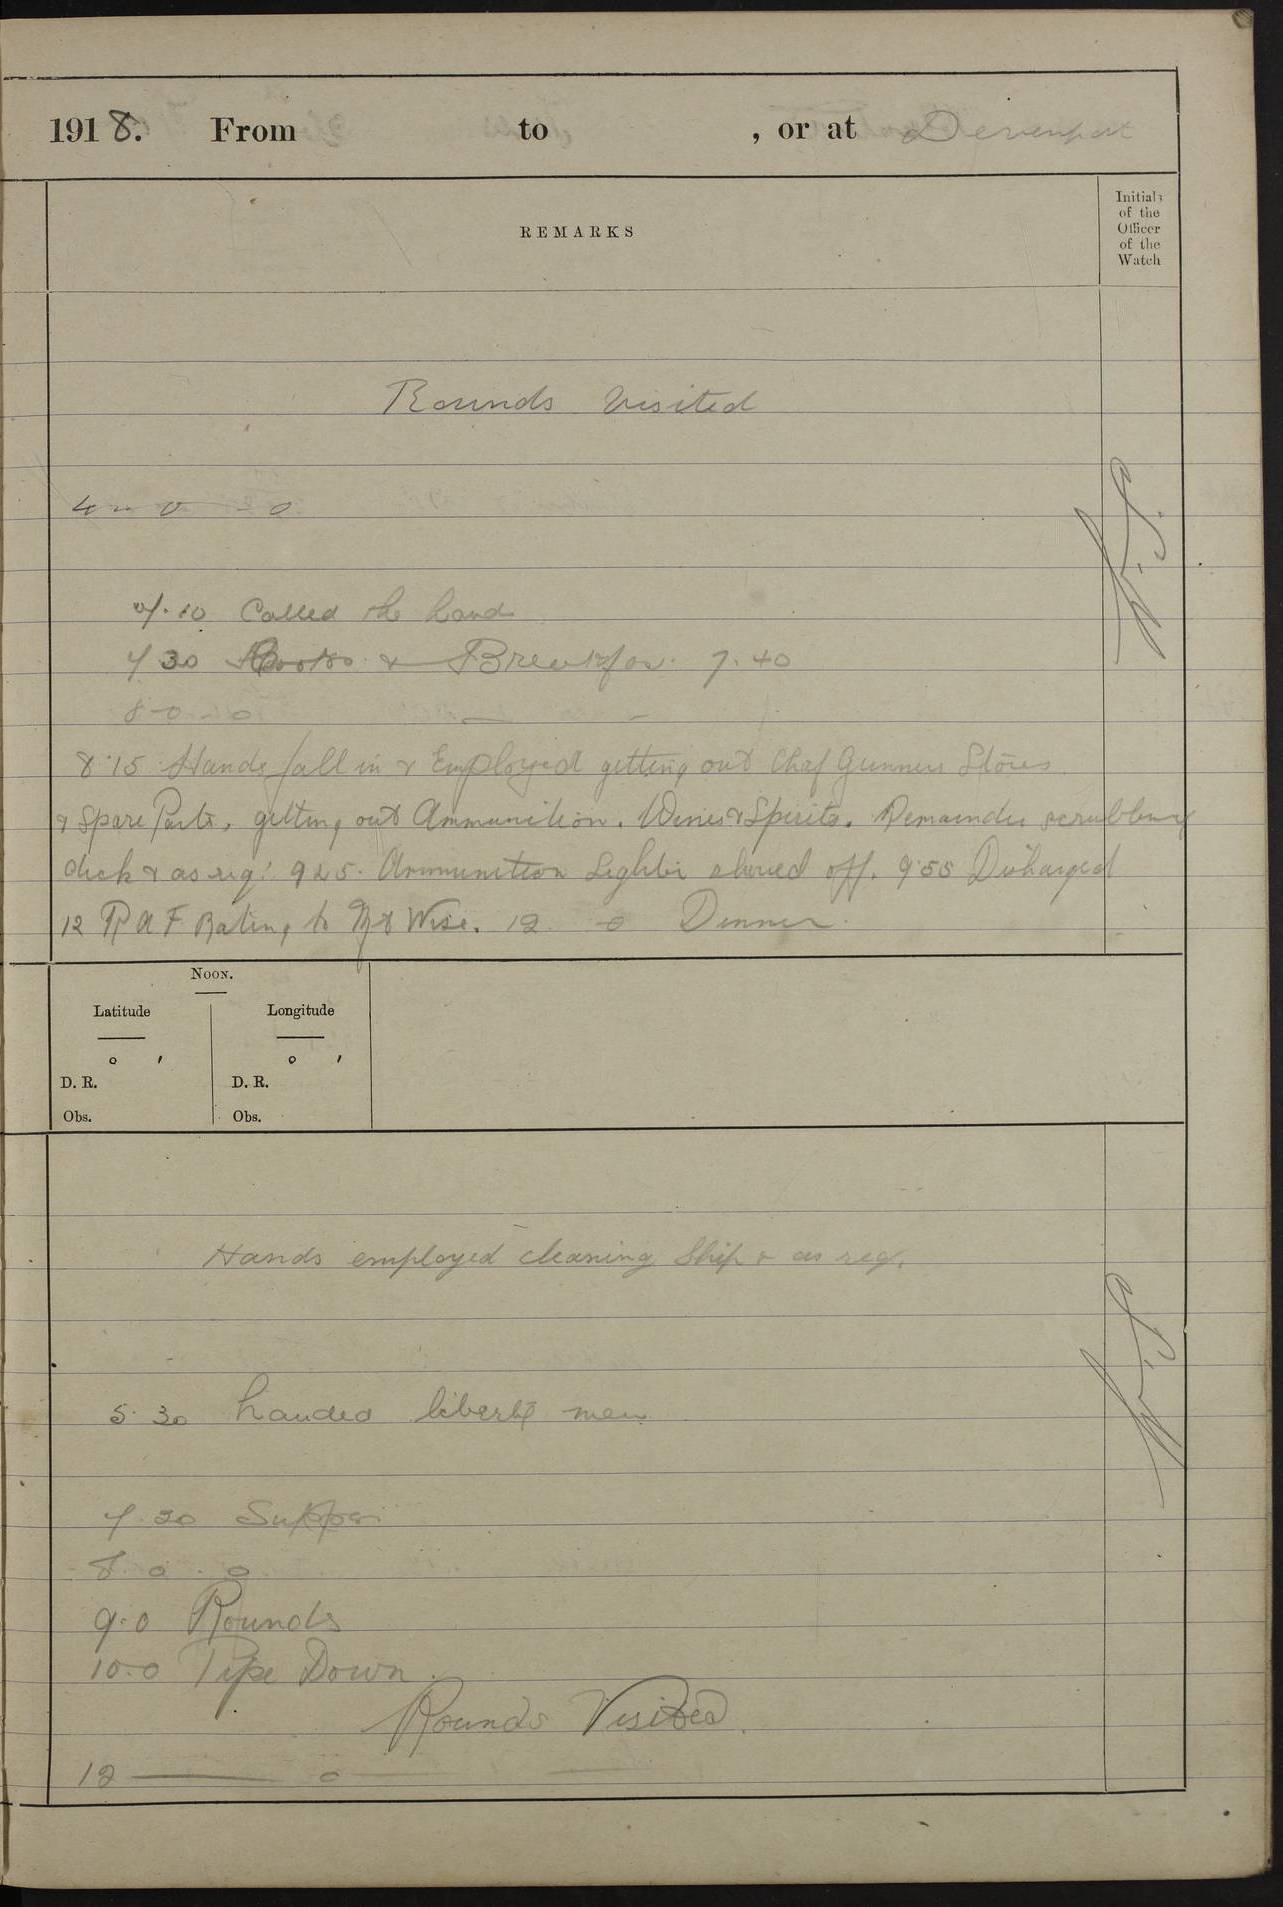 1918. From to , or at Devenport
REMARKS
Initials
of the
Officer
of the
Watch
Rounds Visited
4 0 0
7.10 Called the hands
7 30 Cooks & Breakfas. 7.40
8 0 0
8.15 Hands fall in & Employed getting out Chief Gunners Stores
& Spare Parts, getting out Ammunition. Wines & Spirits. Remainder scrubbing
deck & as req: 9 25. Ammunition Lighter shoved off. 9.55 Discharged
12 R A F Rating to Mt Wise. 12 0 Dinner.
NOON.
Latitude Longitude
° ′ ° ′
D. R. D. R.
Obs. Obs.
Hands employed cleaning Ship & as req.
5.30 Landed liberty men
7.30 Supper
8 0 0
9.0 Rounds
10.0 Pipe Down.
Rounds Visited.
12 — 0 —